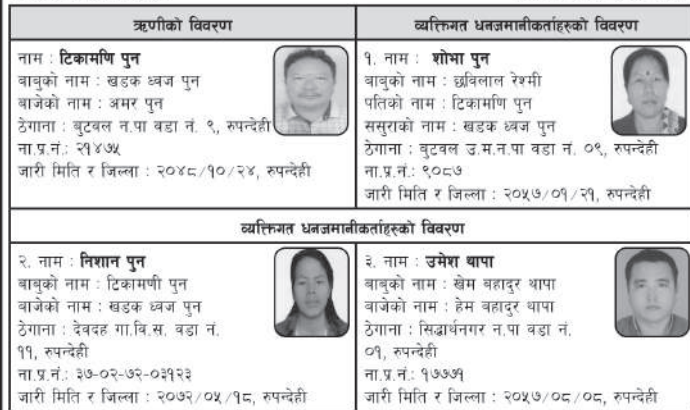 ऋणीको विवरण
नाम : टिकामणि पुन
बाबुको नाम : खडक ध्वज पुन
बाजेको नाम : अमर पुन
ठेगाना : बुटवल न.पा वडा नं. ९, रुपन्देही
ना.प्र.नं.: २१४७५
जारी मिति र जिल्ला : २०४८/१०/२४, रुपन्देही
व्यक्तिगत धनजमानीकर्ताहरुको विवरण
१. नाम : शोभा पुन
बाबुको नाम : छविलाल रेश्मी
पतिको नाम : टिकामणि पुन
ससुराको नाम : खडक ध्वज पुन
ठेगाना : बुटवल उ.म.न.पा वडा नं. ०९, रुपन्देही
ना.प्र.नं.: ९०८७
जारी मिति र जिल्ला : २०५७/०१/२१, रुपन्देही
व्यक्तिगत धनजमानीकर्ताहरुको विवरण
२. नाम : निशान पुन
बाबुको नाम : टिकामणी पुन
बाजेको नाम : खडक ध्वज पुन
ठेगाना : देवदह गा.वि.स. वडा नं.
११, रुपन्देही
ना.प्र.नं.: ३७-०२-७२-०३१२३
जारी मिति र जिल्ला : २०७२/०५/१८, रुपन्देही
३. नाम : उमेश थापा
बाबुको नाम : खेम बहादुर थापा
बाजेको नाम : हेम बहादुर थापा
ठेगाना : सिद्धार्थनगर न.पा वडा नं.
०१, रुपन्देही
ना.प्र.नं.: १७७७१
जारी मिति र जिल्ला : २०५७/०८/०८, रुपन्देही